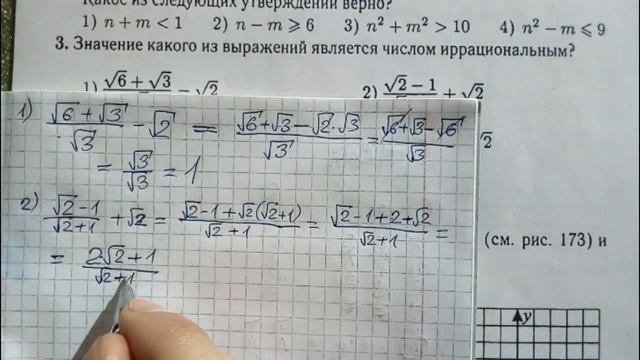 Какое из следующих утверждений верно?
1) n + m < 1 2) n − m ⩾ 6 3) n² + m² > 10 4) n² − m ⩽ 9
3. Значение какого из выражений является числом иррациональным?
1) √6 + √3 − √2 2) √2 − 1 + √2
1) (√6 + √3)/√3 − √2 = (√6 + √3 − √2·√3)/√3 = (√6 + √3 − √6)/√3
= √3/√3 = 1
√2
2) (√2 − 1)/(√2 + 1) + √2 = (√2 − 1 + √2(√2 + 1))/(√2 + 1) = (√2 − 1 + 2 + √2)/(√2 + 1) =
(см. рис. 173) и
= (2√2 + 1)/(√2 + 1
y